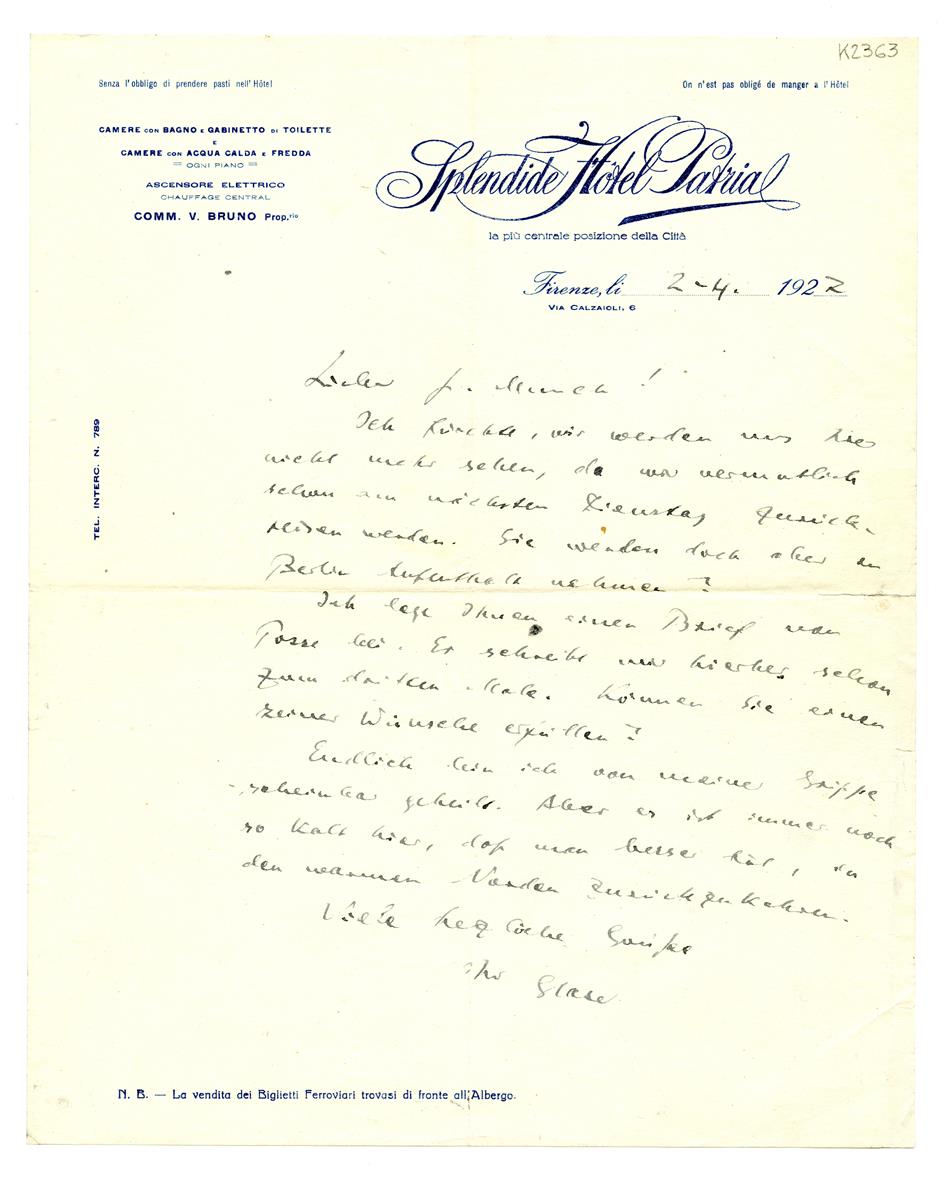 K2363
Senza l'obbligo di prendere pasti nell'Hôtel
On n'est pas obligé de manger a l'Hôtel
CAMERE CON BAGNO E GABINETTO DI TOILETTE
E
CAMERE CON ACQUA CALDA E FREDDA
OGNI PIANO
ASCENSORE ELETTRICO
CHAUFFAGE CENTRAL
COMM. V. BRUNO Prop.rio
Splendide Hôtel Patria
la più centrale posizione della Città
Firenze, li 2-4. 1927
VIA CALZAIOLI, 6
TEL. INTERC. N. 789
Lieber H. Munch!
Ich fürchte, wir werden uns hier
nicht mehr sehen, da wir vermutlich
schon am nächsten Dienstag zurück-
reisen werden. Sie werden doch aber in
Berlin Aufenthalt nehmen?
Ich lege Ihnen einen Brief von
Posse bei. Er schreibt mir hierher schon
zum dritten Male. Können Sie einen
seiner Wünsche erfüllen?
Endlich bin ich von meiner Grippe
scheinbar geheilt. Aber es ist immer noch
so kalt hier, daß man besser tut, in
den warmen Norden zurückzukehren.
Viele herzliche Grüße
Ihr
Glaser
N. B. — La vendita dei Biglietti Ferroviari trovasi di fronte all'Albergo.